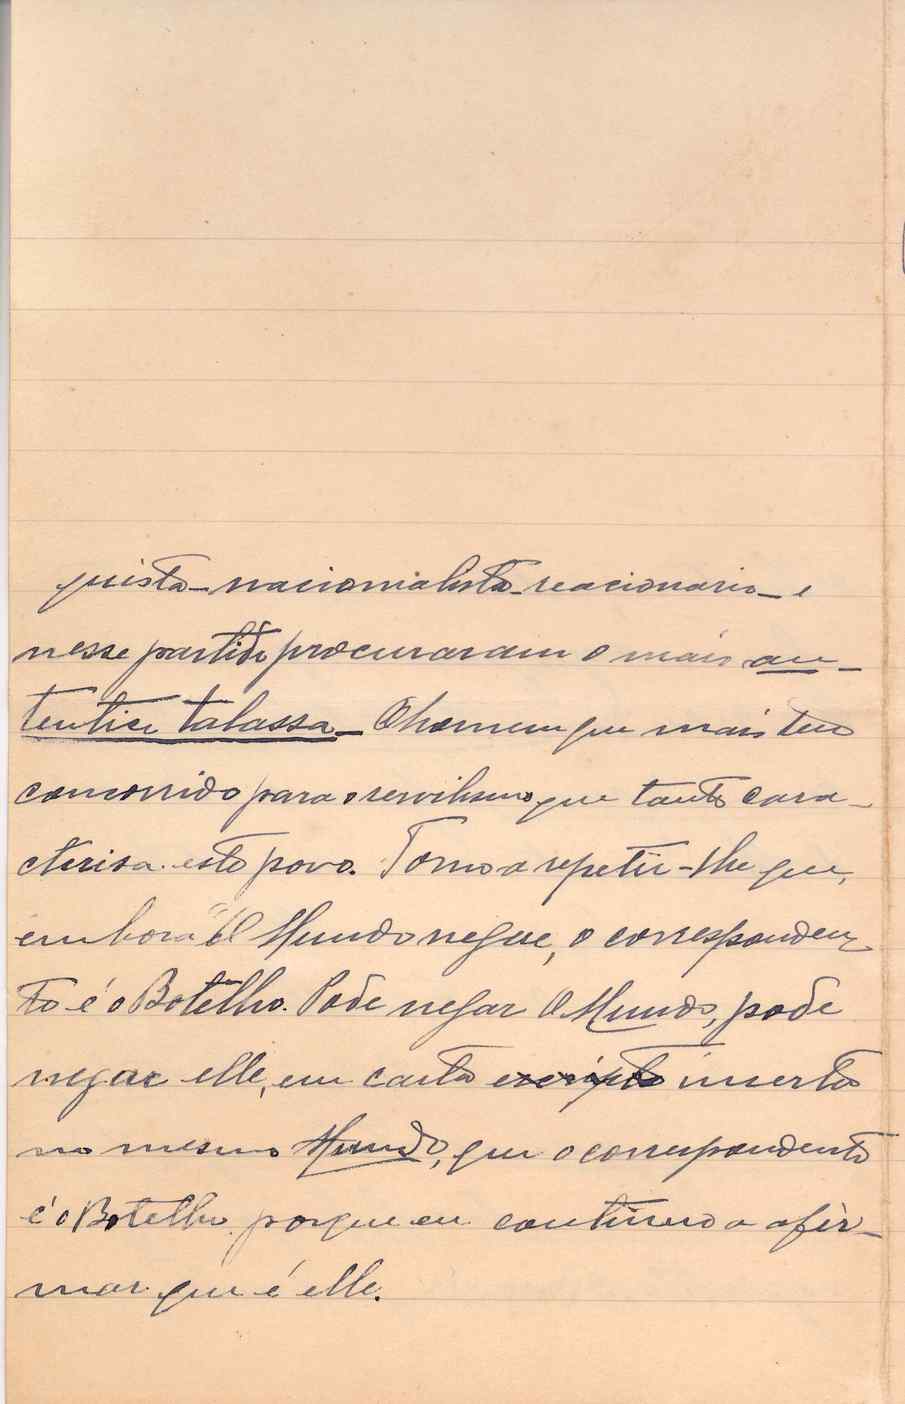 quista-nacionalista-reacionario- e
nesse partido procuraram o mais au-
tentico talassa- O homem que mais tem
concorrido para o servilismo que tanto cara-
cterisa este povo. Torno a repetir-lhe que,
embora "O Mundo negue, o corresponden-
te é o Botelho. Pode negar O Mundo, pode
negar elle, em carta escripta inserta
no mesmo Mundo, que o correspondente
é o Botelho porque eu continuo a afir-
mar que é elle.